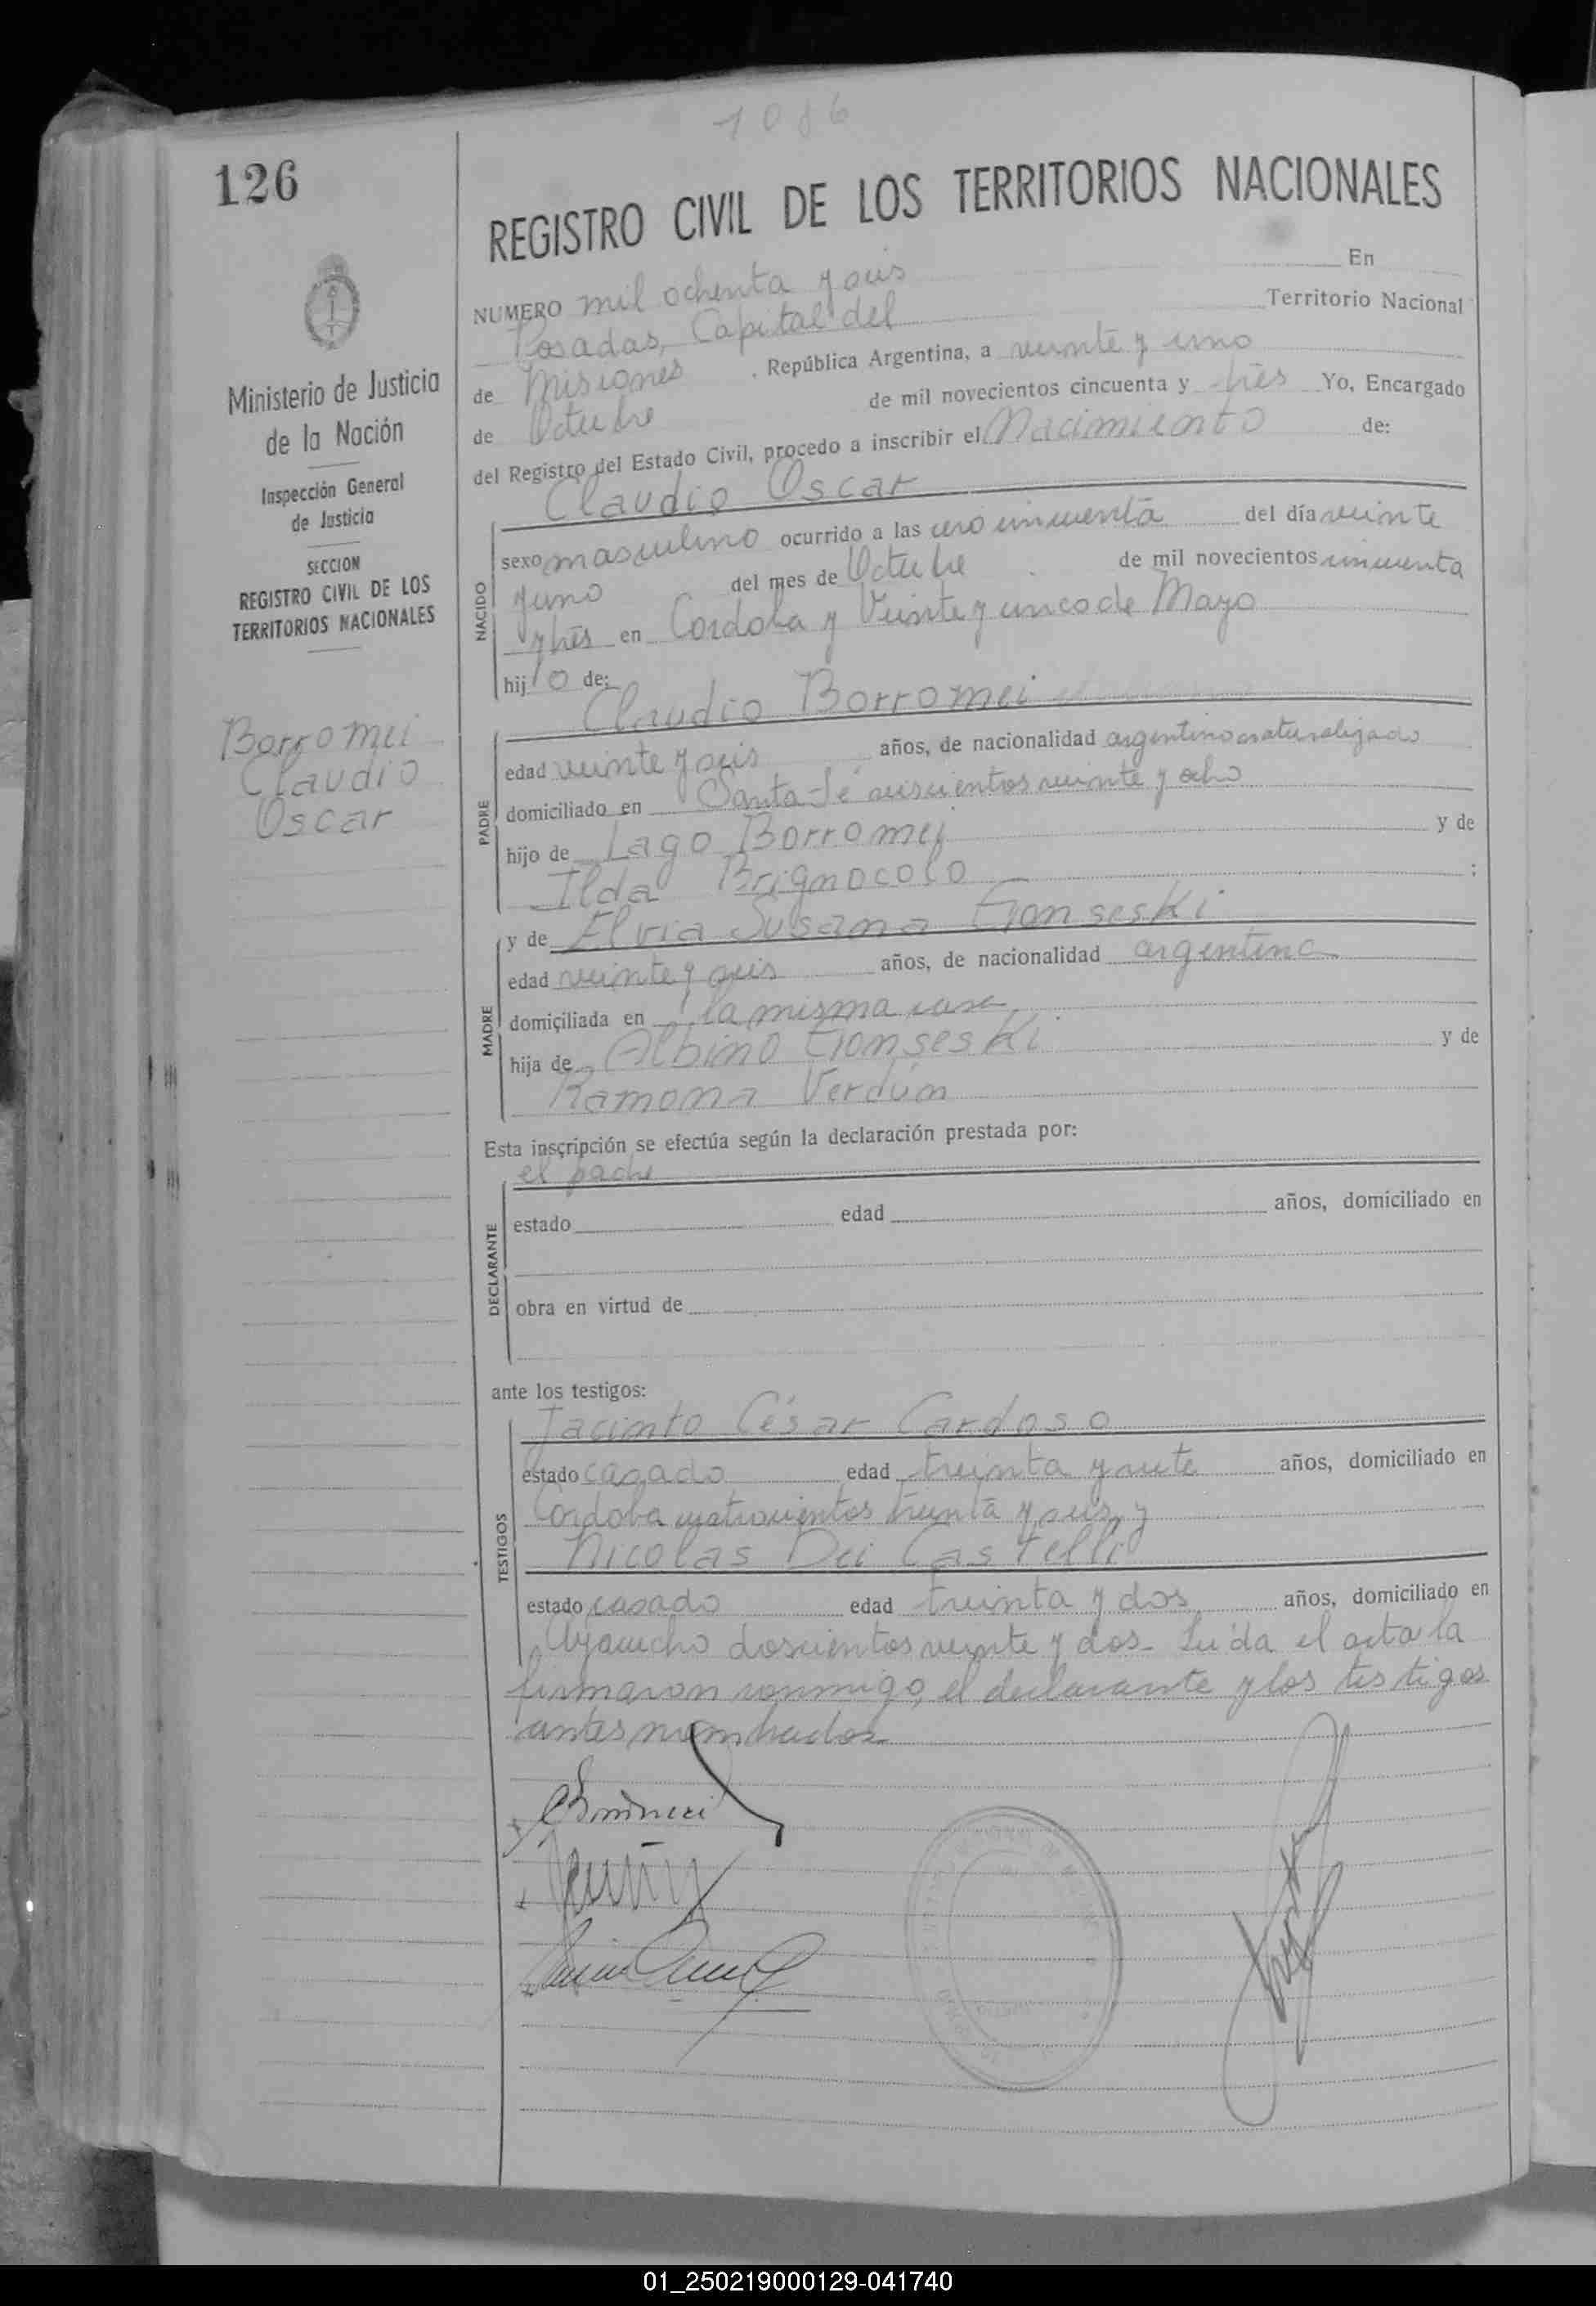 1086
126
REGISTRO CIVIL DE LOS TERRITORIOS NACIONALES
Ministerio de Justicia
de la Nación
Inspección General
de Justicia
SECCION
REGISTRO CIVIL DE LOS
TERRITORIOS NACIONALES
Borromei
Claudio
Oscar
NUMERO mil ochenta y seis En
Posadas, Capital del Territorio Nacional
de Misiones, República Argentina, a veinte y uno
de Octubre de mil novecientos cincuenta y tres Yo, Encargado
del Registro del Estado Civil, procedo a inscribir el Nacimiento de:
Claudio Oscar
NACIDO
sexo masculino ocurrido a las cero cincuenta del día veinte
y uno del mes de Octubre de mil novecientos cincuenta
y tres en Cordoba y Veinte y cinco de Mayo
hijo de:
Claudio Borromei
PADRE
edad veinte y seis años, de nacionalidad argentino naturalizado
domiciliado en Santa Fé seiscientos veinte y ocho
hijo de Lago Borromei y de
Ilda Brignocolo ;
MADRE
y de Elvia Susana
edad veinte y seis años, de nacionalidad argentina
domiciliada en la misma casa
hija de Albino y de
Ramona Verdún
Esta inscripción se efectúa según la declaración prestada por:
el padre
DECLARANTE
estado edad años, domiciliado en
obra en virtud de
ante los testigos:
Jacinto César Cardoso
TESTIGOS
estado casado edad treinta y siete años, domiciliado en
Cordoba cuatrocientos treinta y seis, y
Nicolas Dei Castelli
estado casado edad treinta y dos años, domiciliado en
Ayacucho doscientos veinte y dos. Leída el acta la
firmaron conmigo, el declarante y los testigos
antes nombrados
01_250219000129-041740